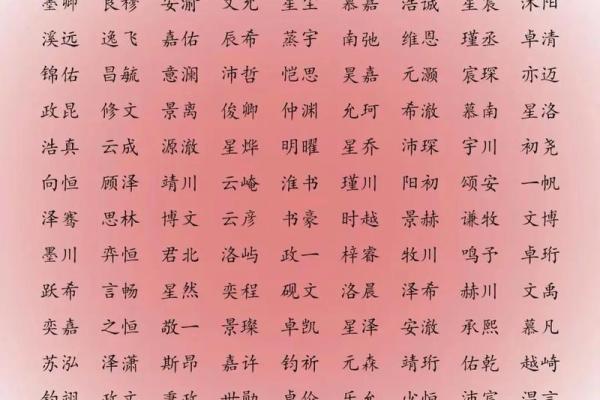 墨卿 良穆 安渝 文尧 星宝 慕嘉 浩诚 星宸 沐阳
溪远 逸飞 嘉佑 辰希 蒸宇 南弛 维恩 瑾丞 卓清
锦佑 昌毓 意澜 沛哲 恺思 昊嘉 元灏 宸琛 亦迈
政昆 修文 景离 俊卿 仲渊 允珂 希澈 慕南 星洛
浩真 云成 源澈 星烨 明曜 星乔 沛琛 宇川 初尧
向恒 顾泽 靖川 云崦 淮书 瑾川 阳初 颂安 一帆
泽骞 思林 博文 云彦 书豪 时越 景赫 谦牧 文博
墨川 弈恒 君北 洛屿 政一 梓睿 牧川 鸣予 卓珩
跃希 言畅 星然 奕程 砚文 洛晨 泽希 赫川 文禹
奕嘉 之恒 敬一 景璨 卓凯 星泽 安澈 承熙 慕凡
苏泓 泽潇 斯昂 嘉许 钧祈 元森 靖珩 佑乾 越崎
钧翊 政文 秉政 世勋 卓伦 乐允 少恒 沛宸 温言